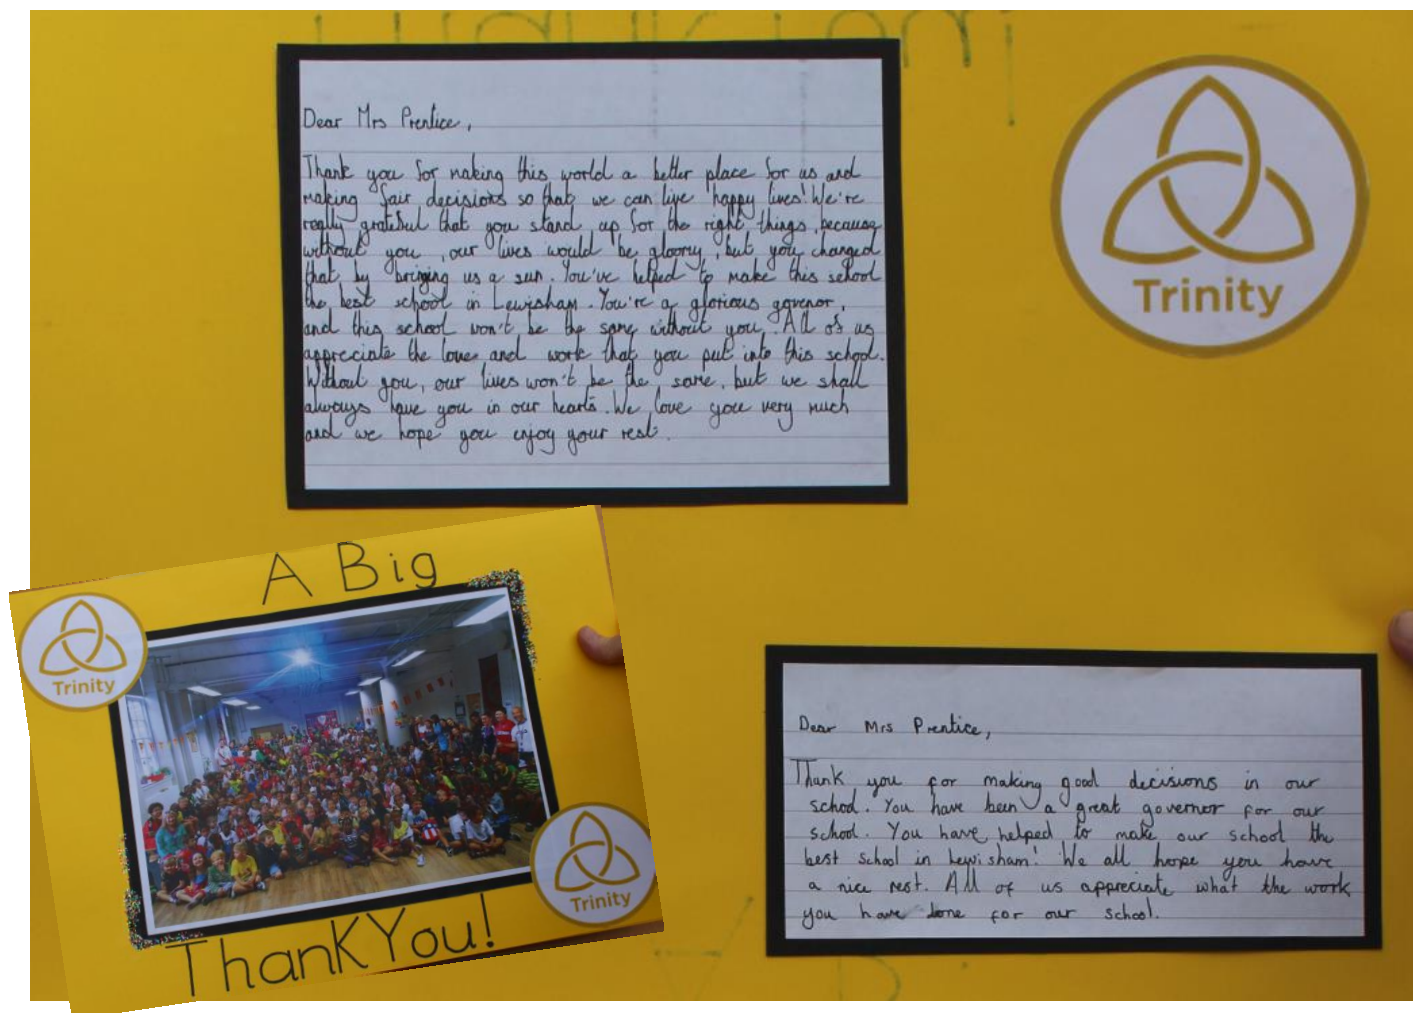 Dear Mrs Prentice,
Thank you for making this world a better place for us and
making fair decisions so that we can live happy lives! We're
really grateful that you stand up for the right things, because
without you, our lives would be gloomy, but you changed
that by bringing us a sun. You've helped to make this school
the best school in Lewisham. You're a glorious govenor,
and this school won't be the same without you. All of us
appreciate the love and work that you put into this school.
Without you, our lives won't be the same, but we shall
always have you in our hearts. We love you very much
and we hope you enjoy your rest.
Trinity
A Big
Trinity
Trinity
ThankYou!
Dear Mrs Prentice,
Thank you for making good decisions in our
school. You have been a great governor for our
school. You have helped to make our school the
best school in Lewisham! We all hope you have
a nice rest. All of us appreciate what the work
you have done for our school.